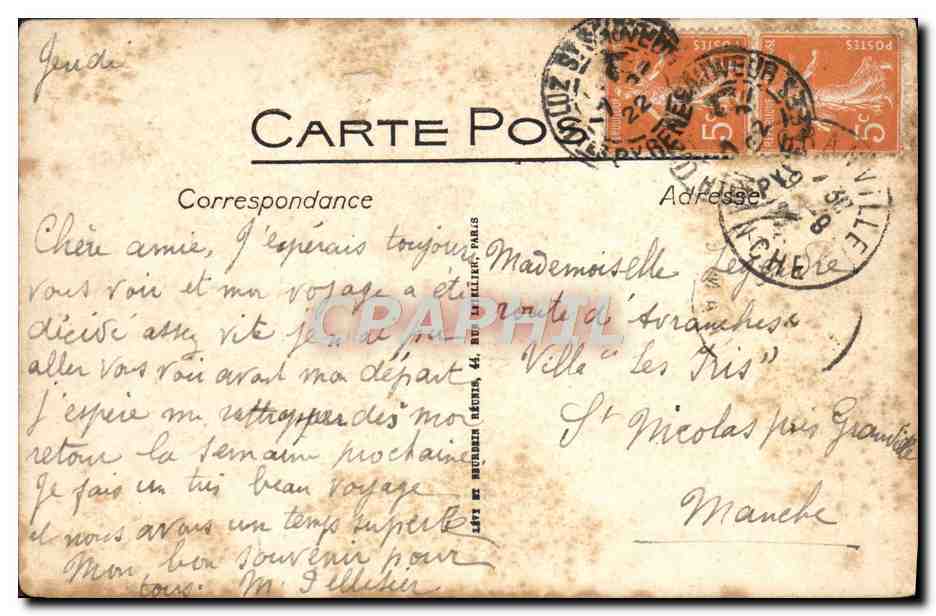 Jeudi
CARTE PO
Correspondance
Adresse
Chère amie, J'espérais toujours
vous voir et mon voyage a été
décidé assez vite je n'ai pu
aller vous voir avant mon départ
J'espère me rattrapper dès mon
retour la semaine prochaine
Je fais un très beau voyage
et nous avons un temps superbe
Mon bon souvenir pour
tous. M. Pelletier
LÉVY ET NEURDEIN RÉUNIS, 44, RUE LETELLIER, PARIS
Mademoiselle
route d'Avranches
Villa "Les Iris"
St Nicolas près Granville
Manche
POSTES
5c
POSTES
5c
22
CHE
CPAPHIL